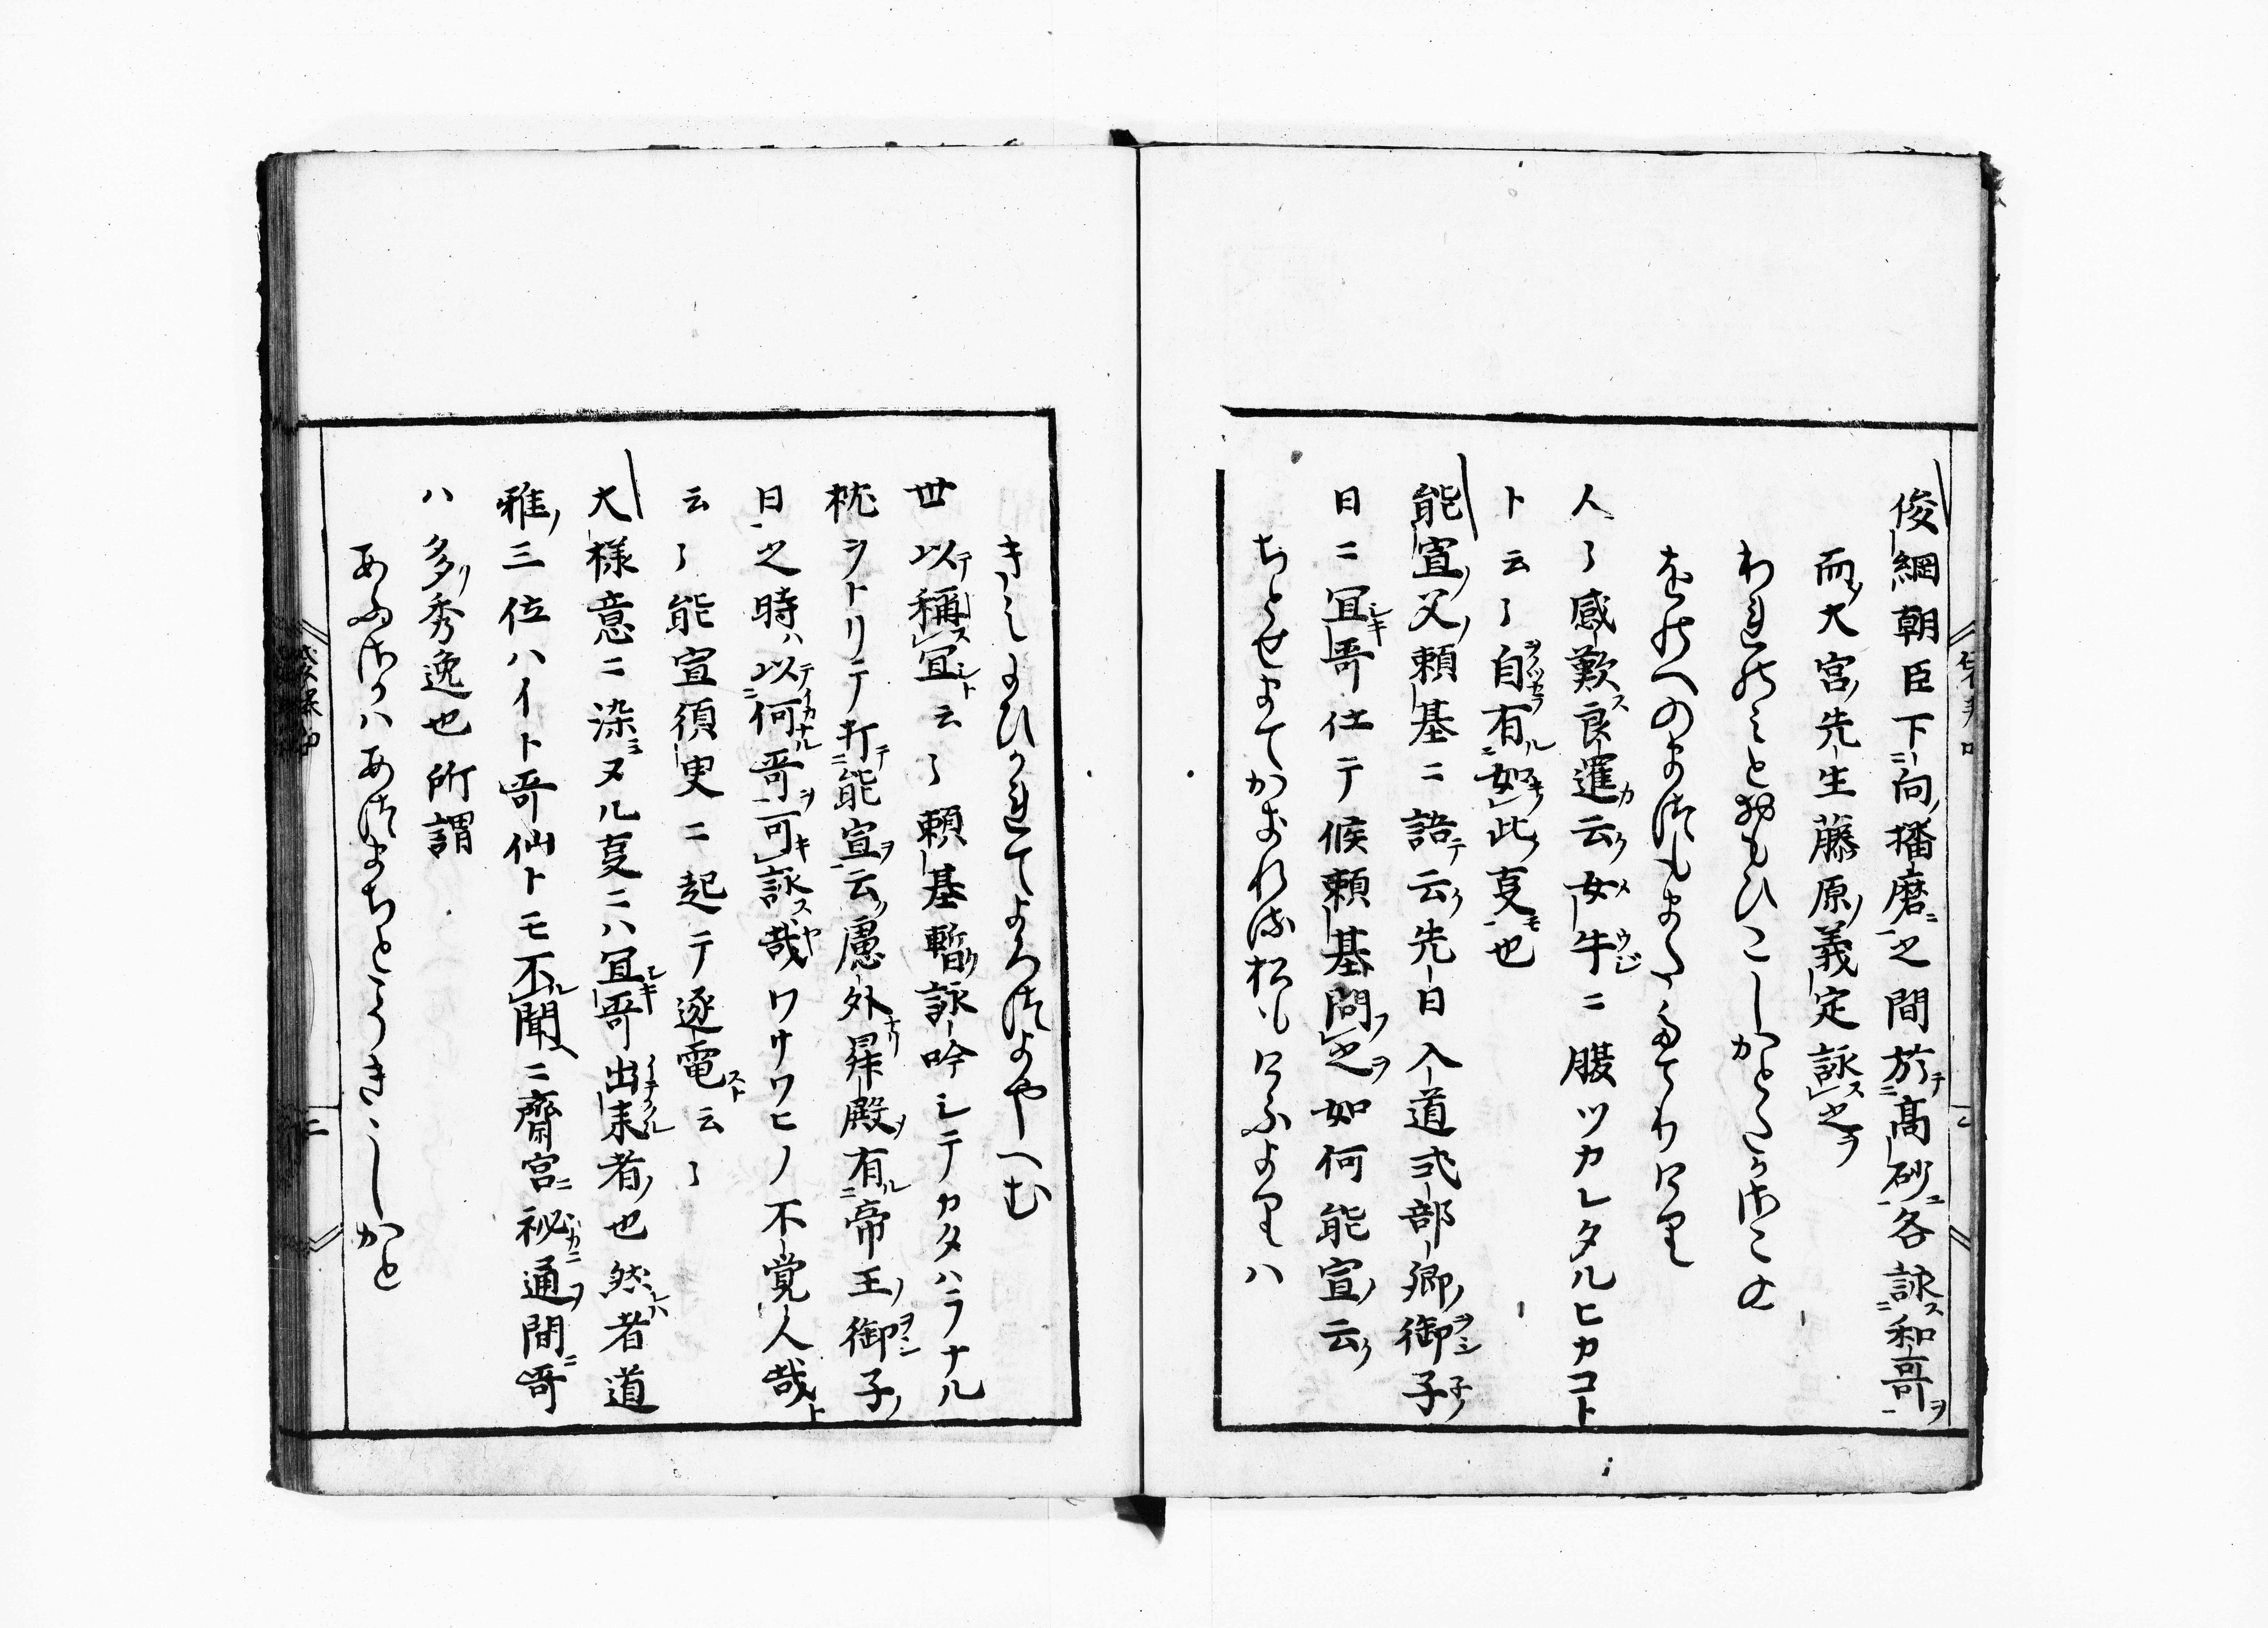 俊綱朝臣下向播磨之間於高砂各詠和哥
而大宮先生藤原義定詠之
われのみとおもひこしかとたかさこの
をのへのまつもまたたてりけり
人々感歎良暹云女牛ニ腹ツカレタルヒカコト
ト云々自有如此事也
能宣父頼基ニ語云先日入道式部卿御子
日ニ冝哥仕テ候頼基問之如何能宣云
ちとせまてかきれる松もけふよりハ
きみにひかれてよろつよやへむ
世以稱冝云々頼基暫詠吟シテカタハラナル
枕ヲトリテ打能宣云慮外昇殿有帝王御子
日之時ハ以何哥可詠哉ワサワヒノ不覚人哉
云々能宣須臾ニ起テ逐電云々
大様意ニ染ヌル事ニハ冝哥出来者也然者道
雅三位ハイト哥仙トモ不聞ニ齋宮祕通間哥
ハ多秀逸也所謂
あふさかハあつまちとこそきゝしかと